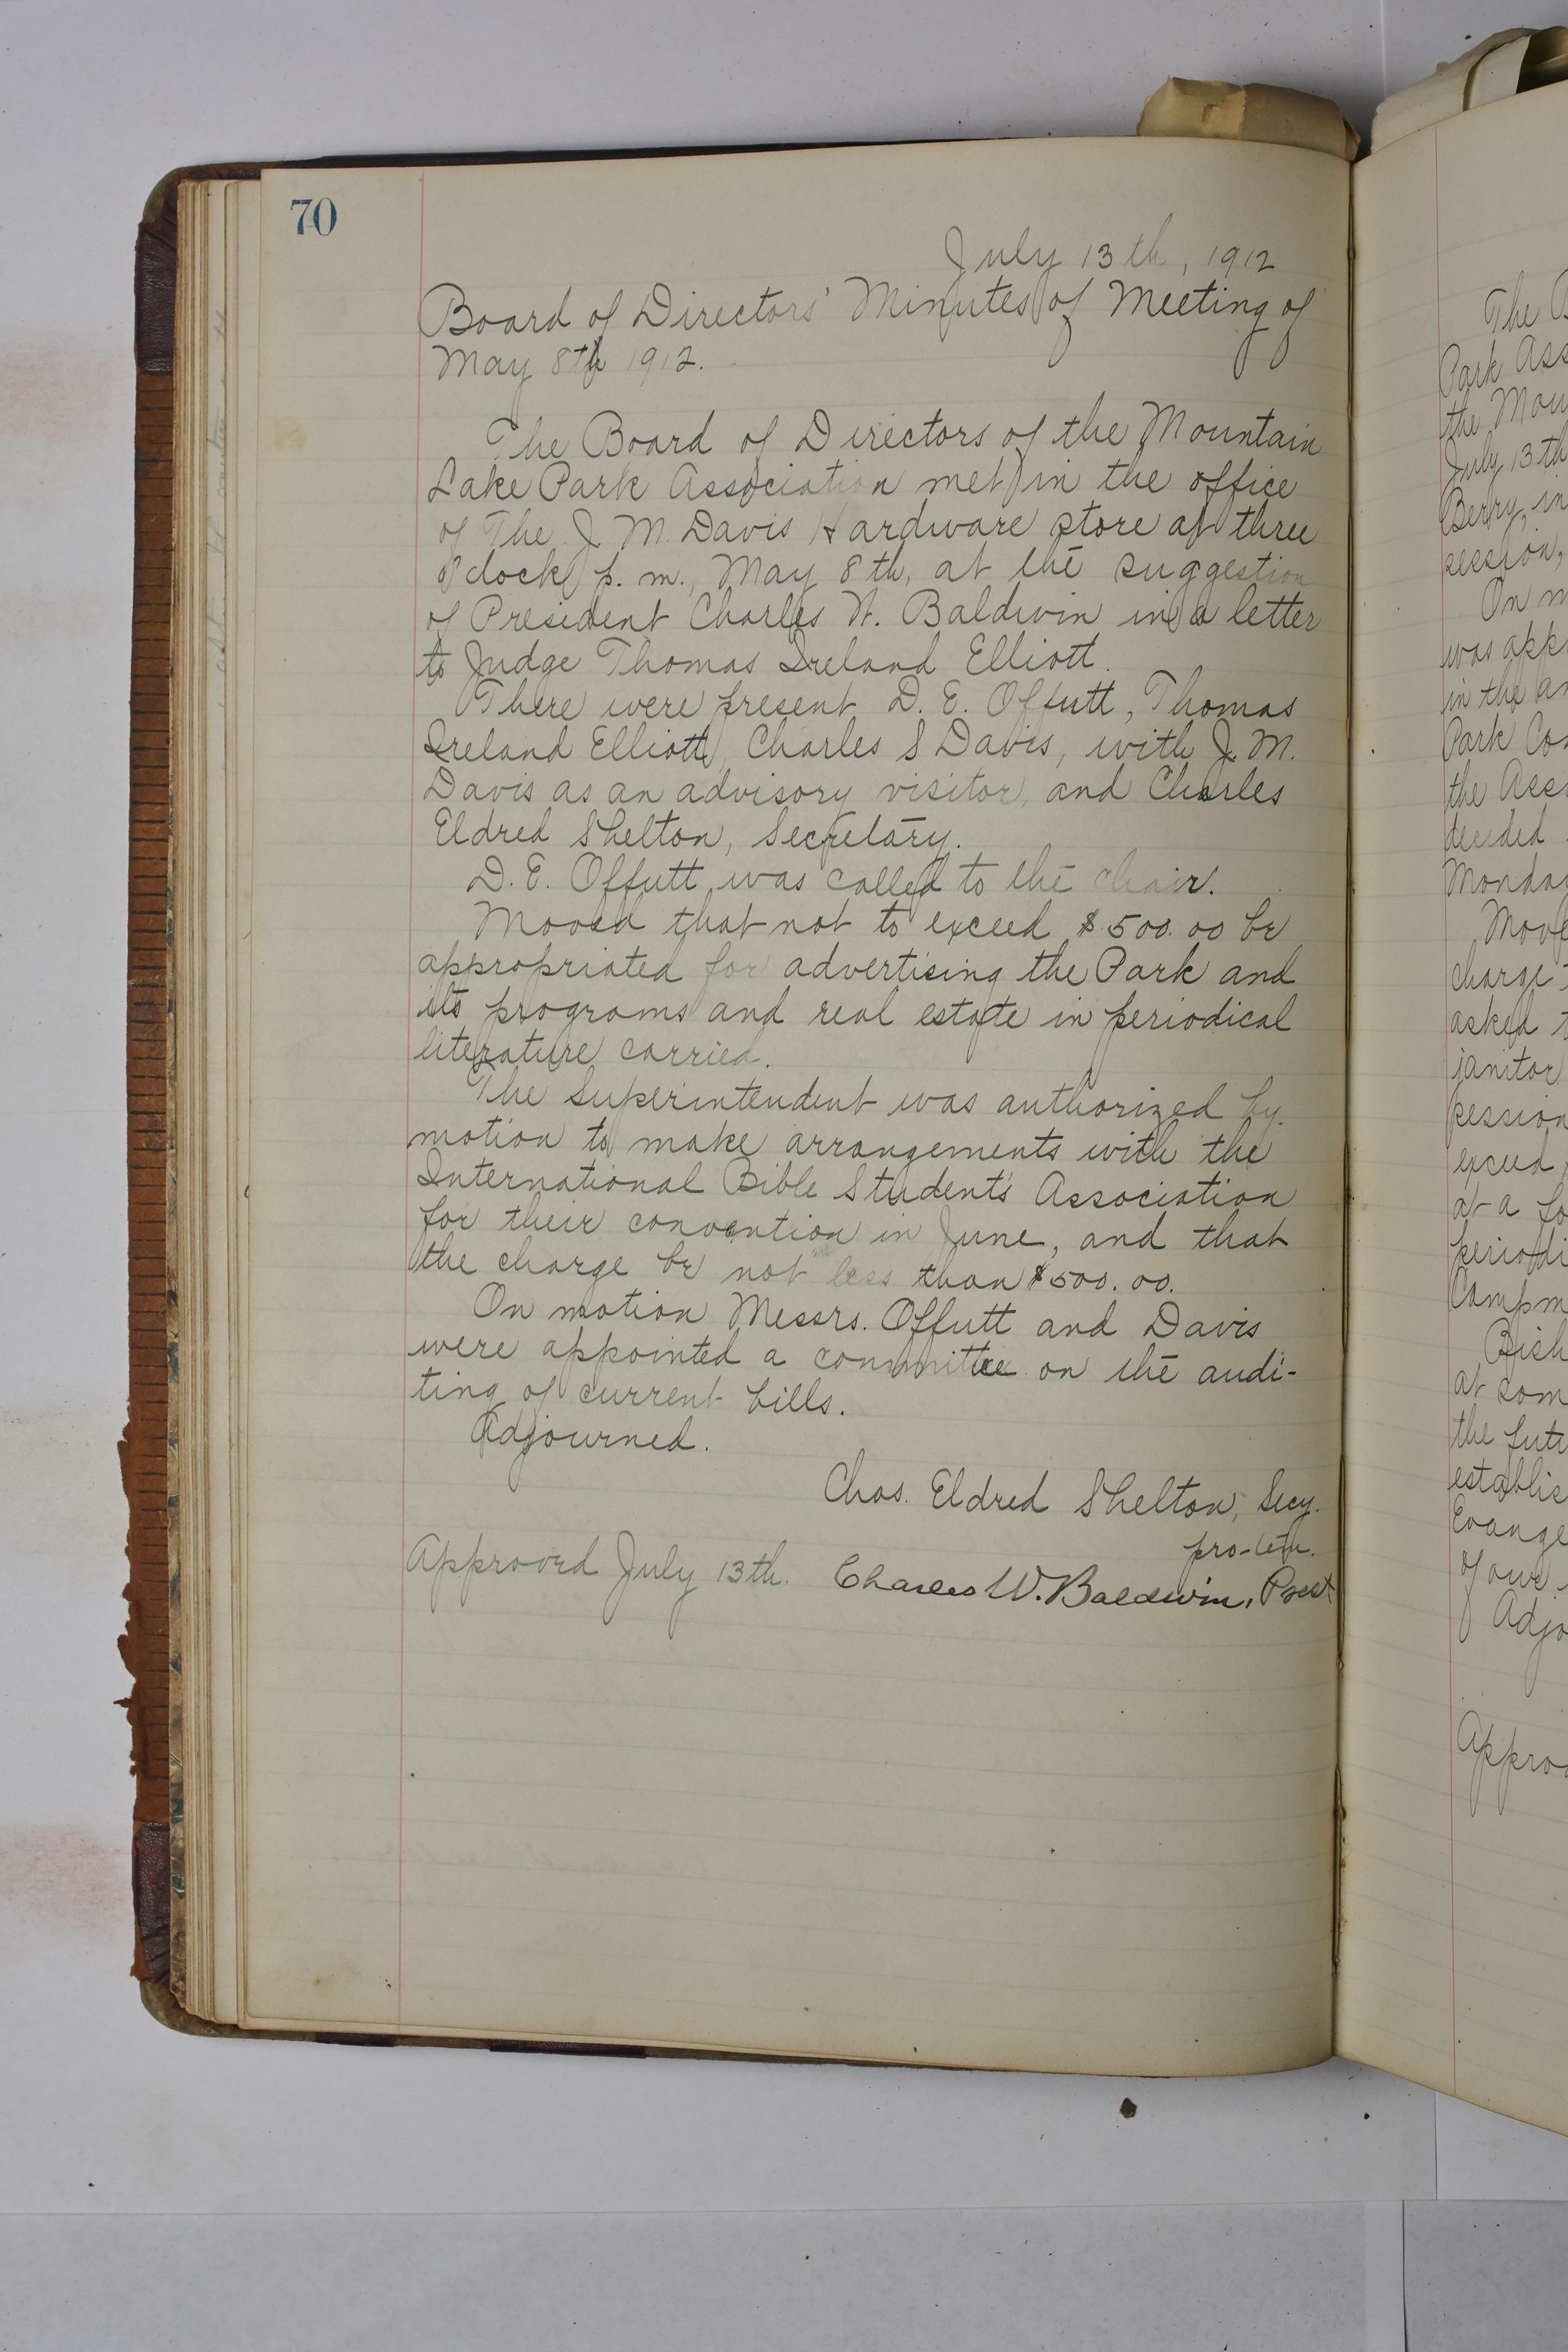 70
July 13th, 1912
Board of Directors' Minutes of Meeting of
May 8th 1912.
The Board of Directors of the Mountain
Lake Park Association met in the office
of The J. M. Davis Hardware store at three
o'clock p. m., May 8th, at the suggestion
of President Charles W. Baldwin in a letter
to Judge Thomas Ireland Elliott.
There were present D. E. Offutt, Thomas
Ireland Elliott, Charles S Davis, with J. M.
Davis as an advisory visitor, and Charles
Eldred Shelton, Secretary.
D. E. Offutt was called to the chair.
Moved that not to exceed $500.00 be
appropriated for advertising the Park and
its programs and real estate in periodical
literature carried.
The Superintendent was authorized by
motion to make arrangements with the
International Bible Student's Association
for their convention in June, and that
the charge be not less than $500.00.
On motion Messrs. Offutt and Davis
were appointed a committee on the audi-
ting of current bills.
Adjourned.
Chas. Eldred Shelton, Secy.
pro-tem.
Approved July 13th. Charles W. Baldwin, Prest
The B
Park Ass
the Moun
July 13th
Berry, in
session,
On m
was appr
in the an
Park Con
the Asso
deeded
Monday
Move
charge
asked t
janitor
session
exceed
at a fo
periodi
Campm
Bish
at som
the futu
establis
Evange
of our
Adjo
Approv